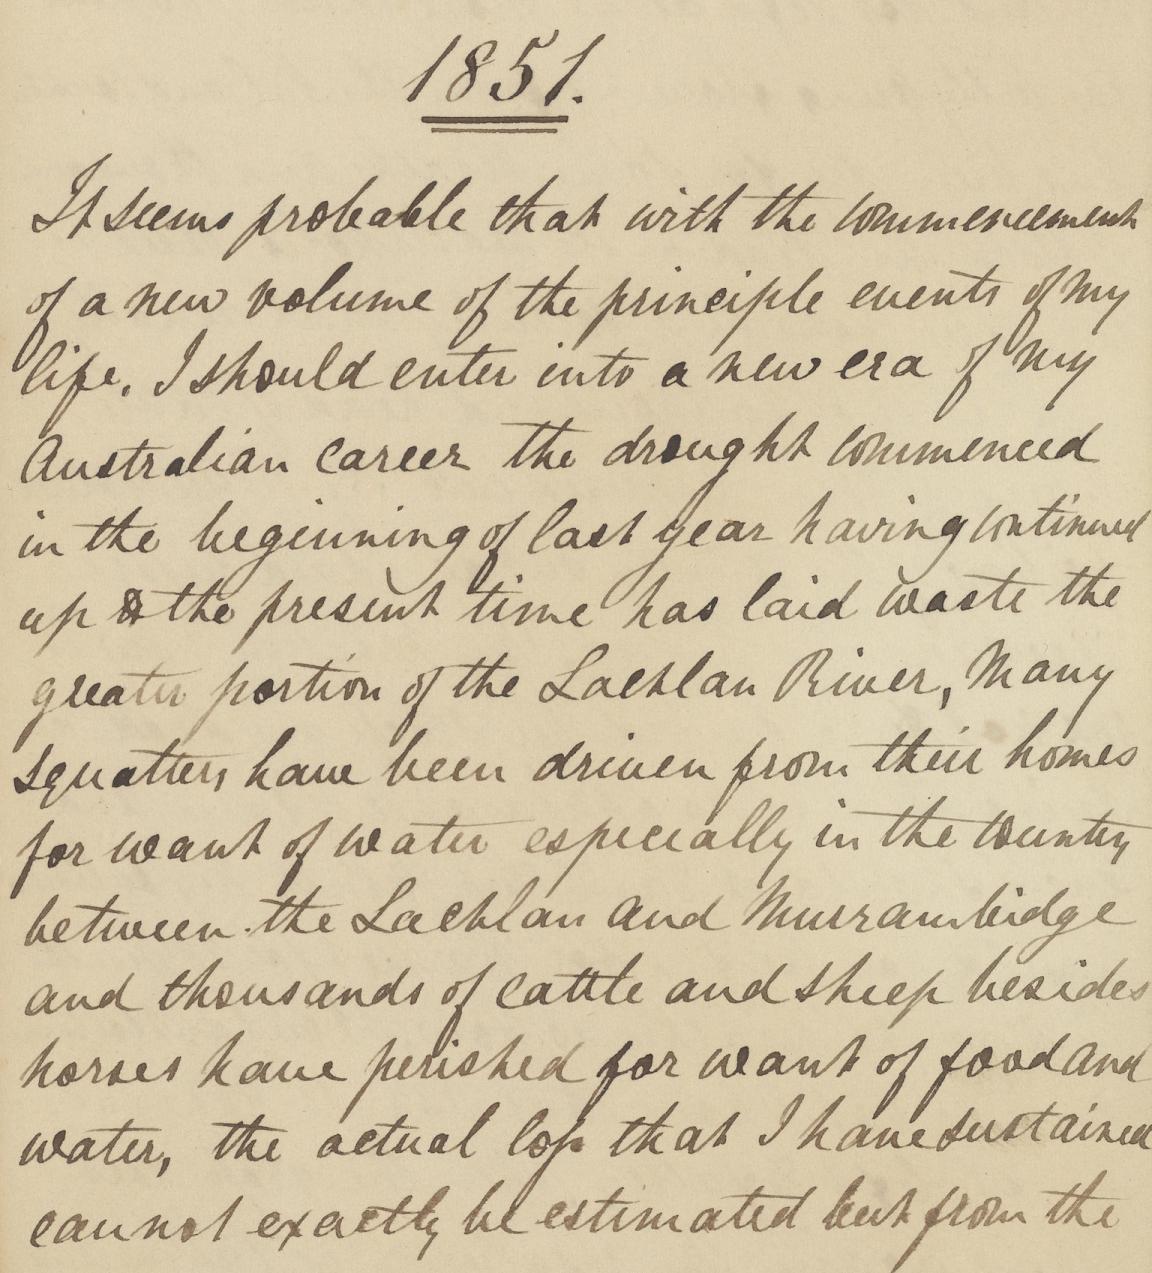 1851.
It seems probable that with the commencement
of a new volume of the principle events of my
life, I should enter into a new era of my
Australian career the drought commenced
in the beginning of last year having continued
up to the present time has laid waste the
greater portion of the Lachlan River, Many
squatters have been driven from their homes
for want of water especially in the country
between the Lachlan and Murrambidge
and thousands of cattle and sheep besides
horses have perished for want of food and
water, the actual loss that I have sustained
cannot exactly be estimated but from the